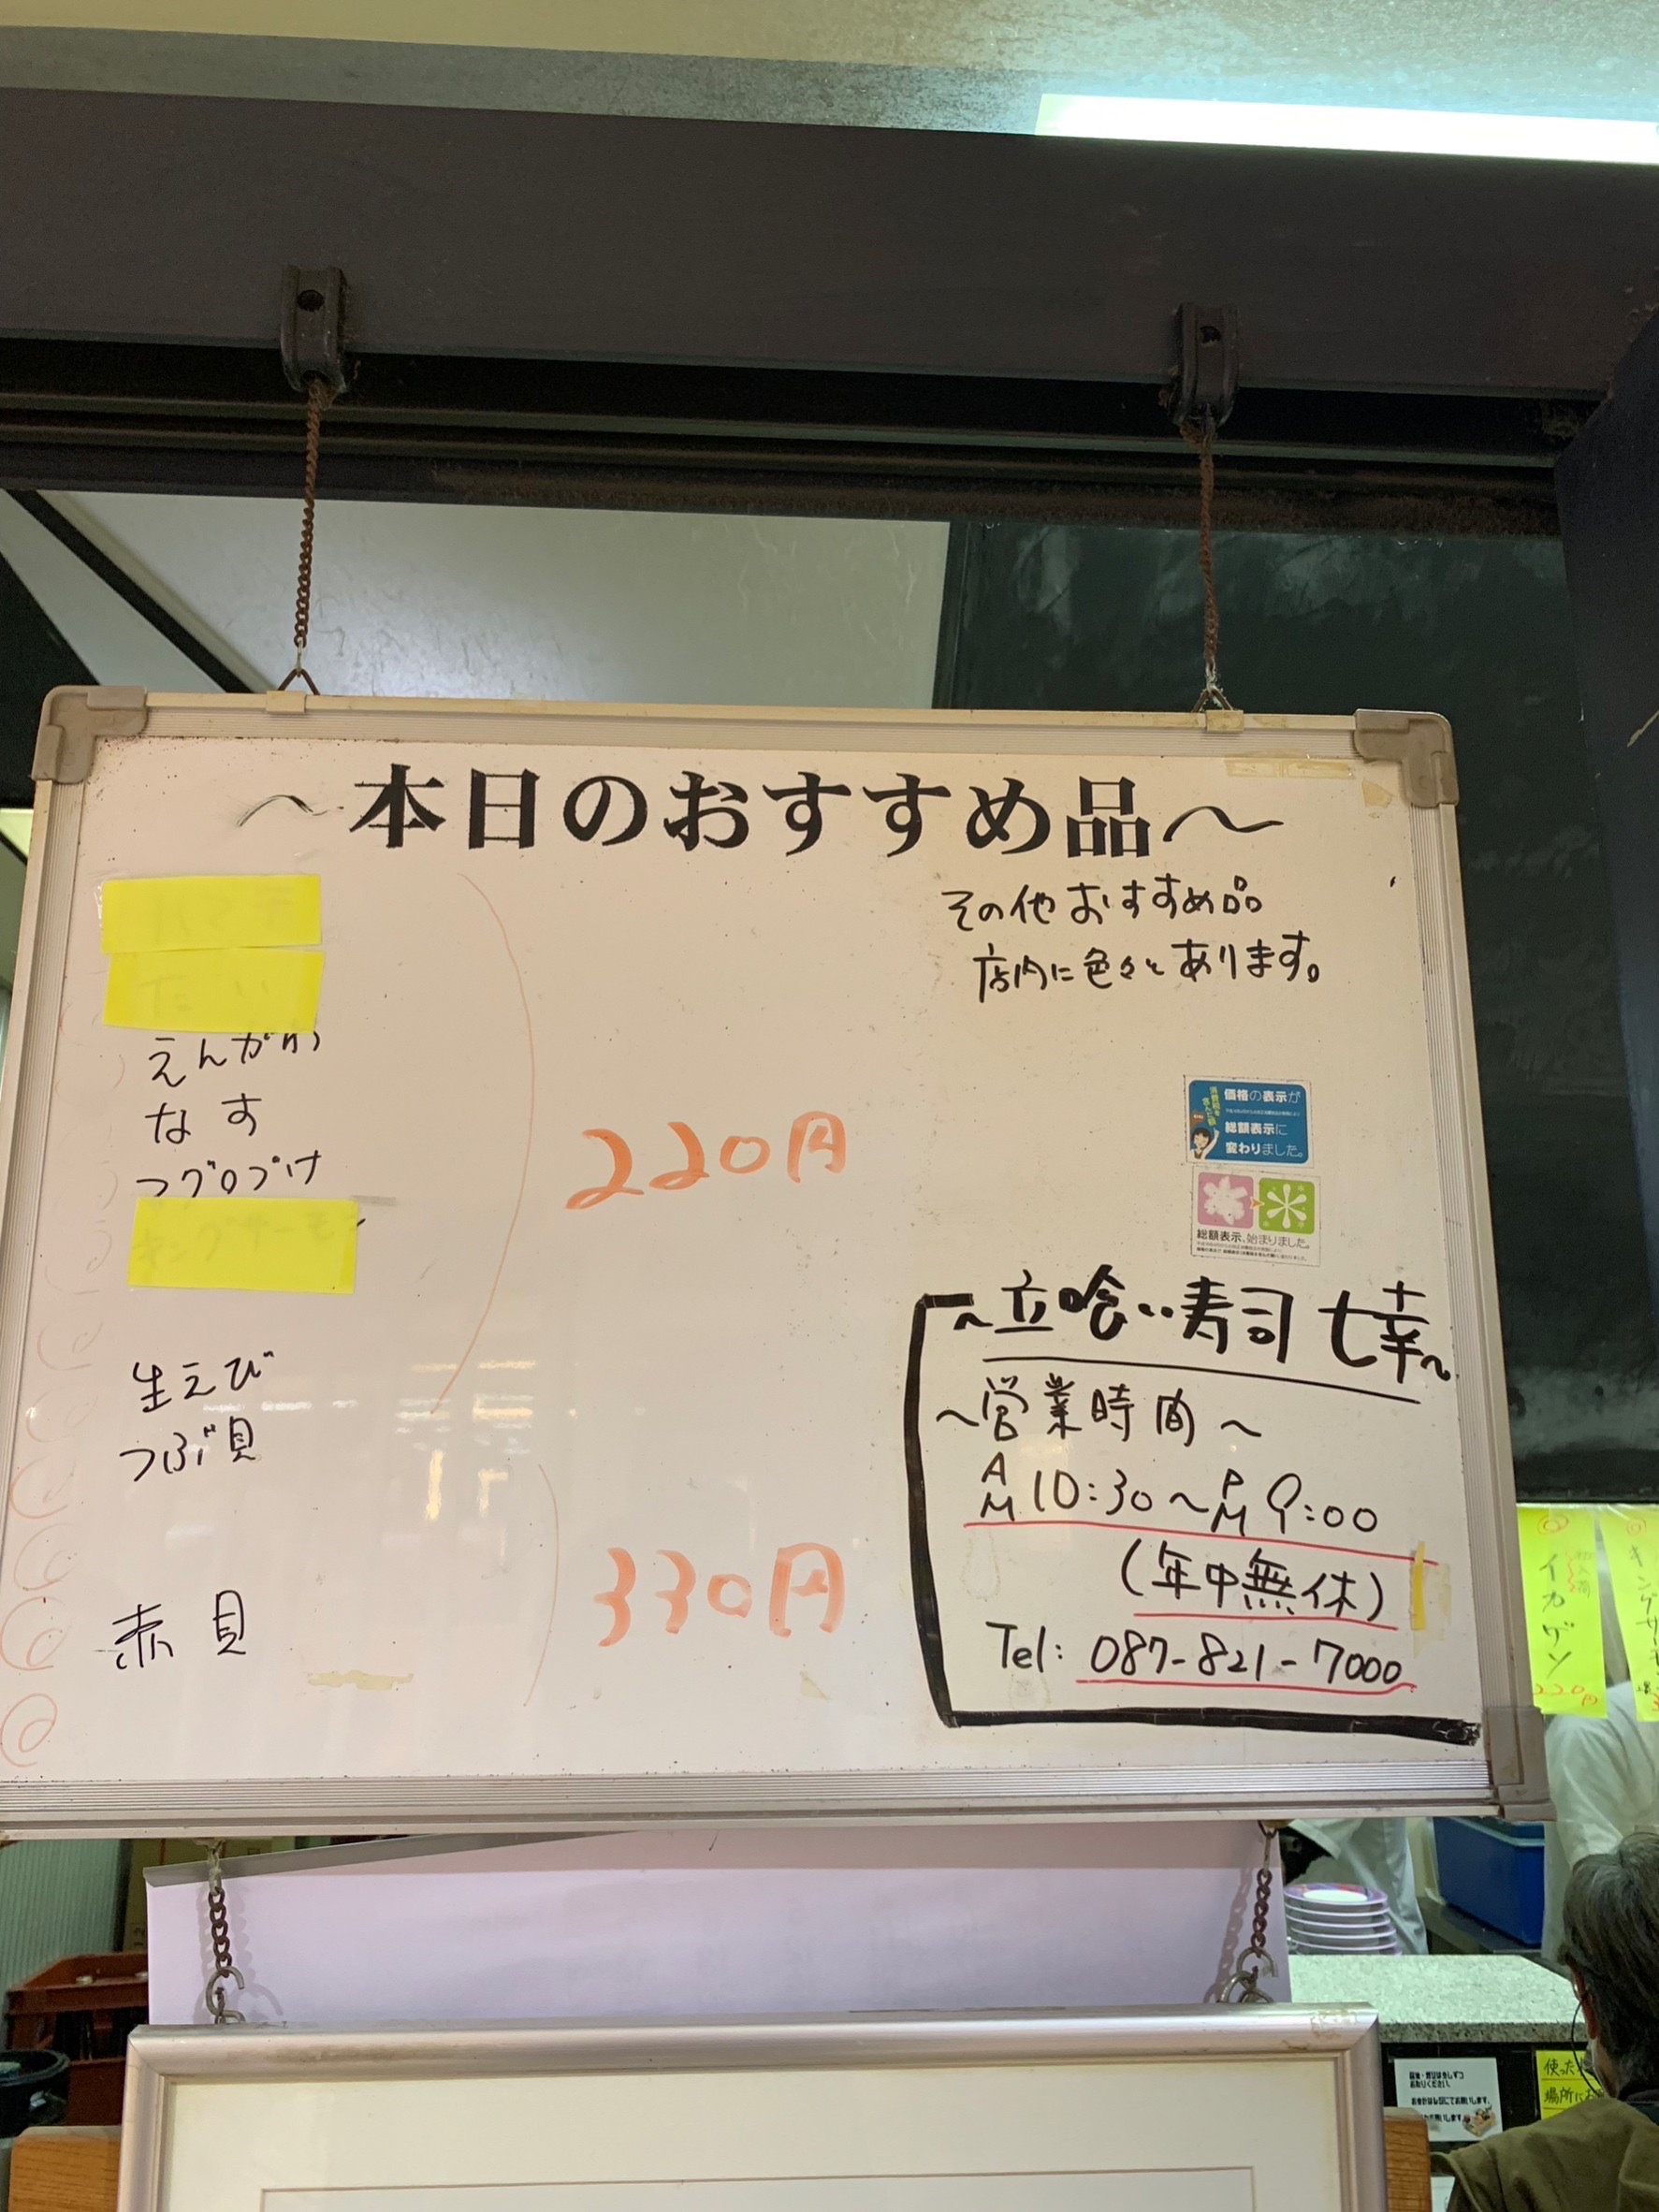 ～本日のおすすめ品～
その他おすすめ品
店内に色々とあります。
えんがわ
なす
マグロづけ
220円
生えび
つぶ貝
赤貝
330円
価格の表示が
総額表示に
変わりました。
総額表示、始まりました。
～立喰い寿司 七幸～
～営業時間～
AM10:30～PM9:00
(年中無休)
Tel: 087-821-7000
イカゲソ
220円
キングサーモ
使った
場所にお